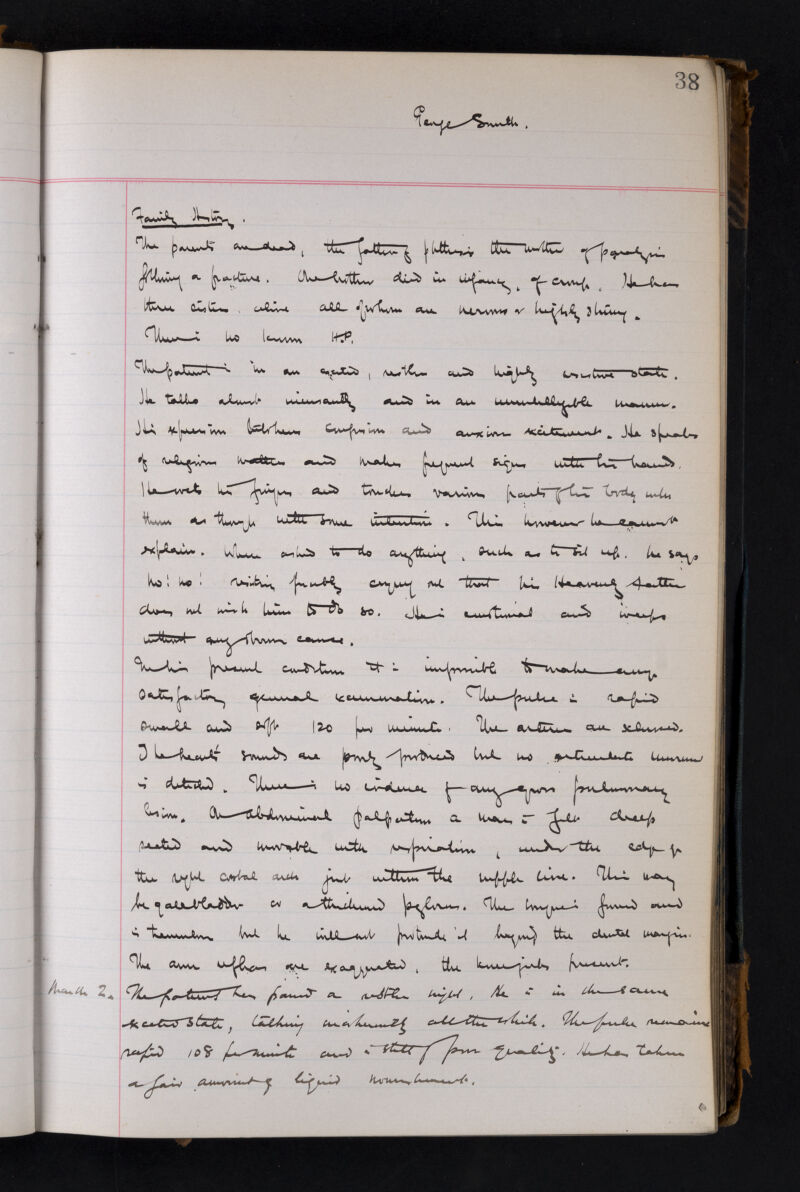 38
George Smith.
Family History.
The parents are dead, the father of phthisis the mother of paralysis
following a fracture. One brother died in infancy, of croup. He has
three sisters alive all of whom are nervous & highly strung.
There is no known H.P.
The patient is in an excited, restless and highly resistive state.
He talks almost incessantly and in an unintelligible manner.
His expression betokens confusion and anxious excitement. He speaks
of religious matters and makes frequent signs with his hands.
He wets his fingers and touches various parts of his body with
them as though with some intention. This however he cannot
explain. When asked to do anything, such as to sit up. he says
No! no! resisting forcibly crying out that his Heavenly Father
does not wish him to do so. He is emotional and weeps
without any obvious cause.
In his present condition it is impossible to make any
satisfactory general examination. The pulse is rapid
small and soft 120 per minute. The arteries are
The heart sounds are poorly produced but no murmur
is detected. There is no evidence of any gross pulmonary
lesion. On abdominal palpation a mass is felt deep
seated and movable with respiration, under the edge of
the right costal arch just within the nipple line. This may
be gall bladder or a thickened pylorus. The tongue is furred and
is tremulous but he will not protrude it beyond the dental margin.
The arm reflexes are exaggerated, the knee jerks present.
March 2. The patient has passed a restless night. He is in the same
excited state, talking incoherently all the while. The pulse remains
rapid 108 per minute and is still of poor quality. He has taken
a fair amount of liquid nourishment.